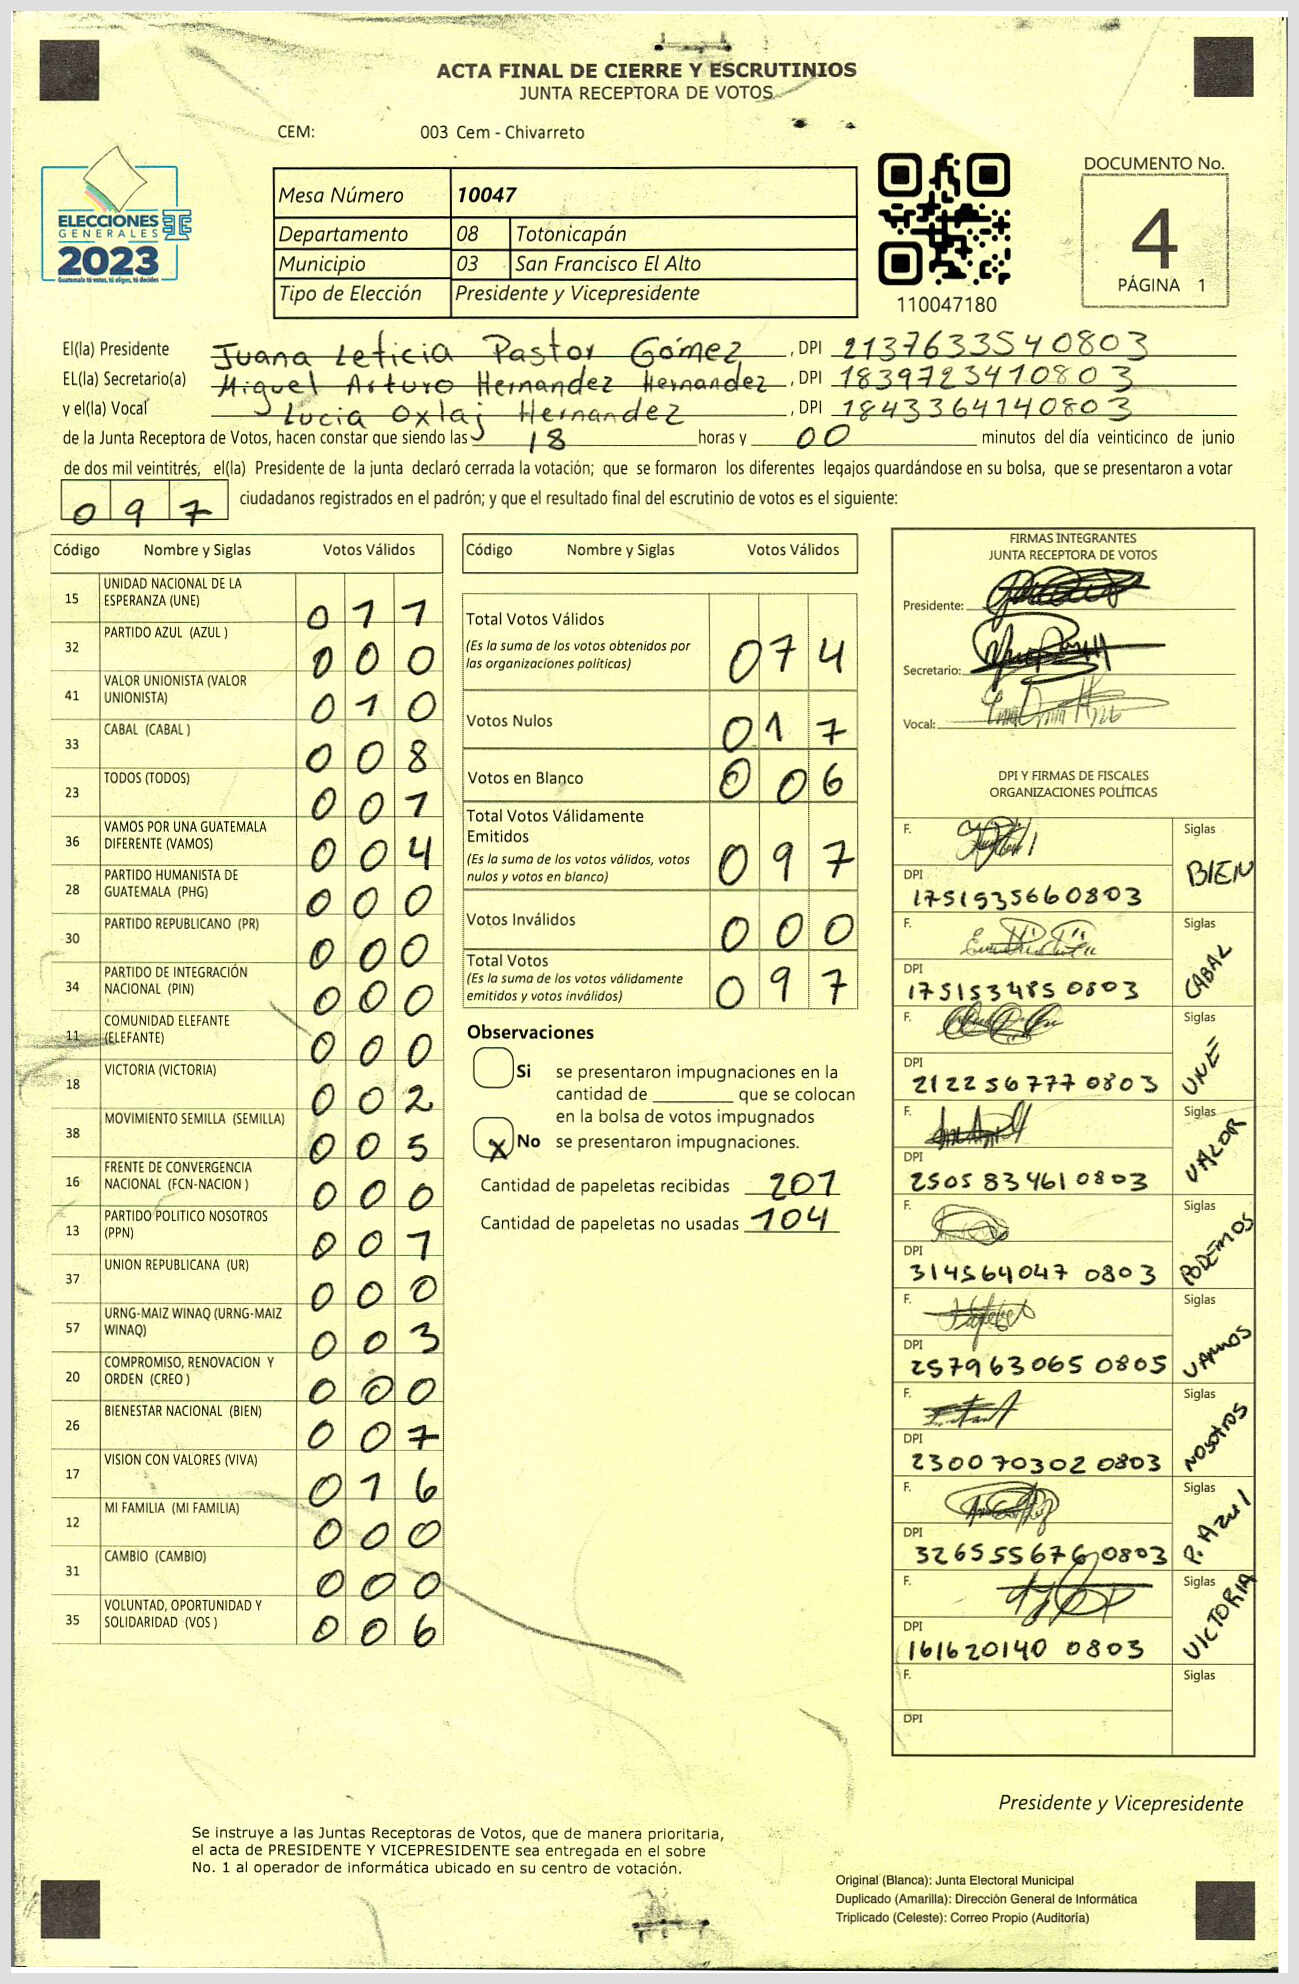 ACTA FINAL DE CIERRE Y ESCRUTINIOS
JUNTA RECEPTORA DE VOTOS
CEM: 003 Cem - Chivarreto
ELECCIONES
GENERALES
2023
Guatemala tú votas, tú eliges, tú decides
Mesa Número 10047
Departamento 08 Totonicapán
Municipio 03 San Francisco El Alto
Tipo de Elección Presidente y Vicepresidente
110047180
DOCUMENTO No.
4
PÁGINA 1
El(la) Presidente Juana Leticia Pastor Gómez, DPI 2137633540803
EL(la) Secretario(a) Miguel Arturo Hernandez Hernandez, DPI 1839723410803
y el(la) Vocal Lucia Oxlaj Hernandez, DPI 1843364140803
de la Junta Receptora de Votos, hacen constar que siendo las 18 horas y 00 minutos del día veinticinco de junio
de dos mil veintitrés, el(la) Presidente de la junta declaró cerrada la votación; que se formaron los diferentes legajos quardándose en su bolsa, que se presentaron a votar
097 ciudadanos registrados en el padrón; y que el resultado final del escrutinio de votos es el siguiente:
Código Nombre y Siglas Votos Válidos
15 UNIDAD NACIONAL DE LA ESPERANZA (UNE) 011
32 PARTIDO AZUL (AZUL ) 000
41 VALOR UNIONISTA (VALOR UNIONISTA) 010
33 CABAL (CABAL ) 008
23 TODOS (TODOS) 001
36 VAMOS POR UNA GUATEMALA DIFERENTE (VAMOS) 004
28 PARTIDO HUMANISTA DE GUATEMALA (PHG) 000
30 PARTIDO REPUBLICANO (PR) 000
34 PARTIDO DE INTEGRACIÓN NACIONAL (PIN) 000
11 COMUNIDAD ELEFANTE (ELEFANTE) 000
18 VICTORIA (VICTORIA) 002
38 MOVIMIENTO SEMILLA (SEMILLA) 005
16 FRENTE DE CONVERGENCIA NACIONAL (FCN-NACION ) 000
13 PARTIDO POLITICO NOSOTROS (PPN) 001
37 UNION REPUBLICANA (UR) 000
57 URNG-MAIZ WINAQ (URNG-MAIZ WINAQ) 003
20 COMPROMISO, RENOVACION Y ORDEN (CREO ) 000
26 BIENESTAR NACIONAL (BIEN) 007
17 VISION CON VALORES (VIVA) 016
12 MI FAMILIA (MI FAMILIA) 000
31 CAMBIO (CAMBIO) 000
35 VOLUNTAD, OPORTUNIDAD Y SOLIDARIDAD (VOS ) 006
Código Nombre y Siglas Votos Válidos
Total Votos Válidos 074
(Es la suma de los votos obtenidos por
las organizaciones políticas)
Votos Nulos 017
Votos en Blanco 006
Total Votos Válidamente
Emitidos 097
(Es la suma de los votos válidos, votos
nulos y votos en blanco)
Votos Inválidos 000
Total Votos 097
(Es la suma de los votos válidamente
emitidos y votos inválidos)
Observaciones
Si se presentaron impugnaciones en la
cantidad de ________ que se colocan
en la bolsa de votos impugnados
X No se presentaron impugnaciones.
Cantidad de papeletas recibidas 201
Cantidad de papeletas no usadas 104
FIRMAS INTEGRANTES
JUNTA RECEPTORA DE VOTOS
Presidente:
Secretario:
Vocal:
DPI Y FIRMAS DE FISCALES
ORGANIZACIONES POLÍTICAS
F. Siglas BIEN
DPI 1751535660803
F. Siglas CABAL
DPI 175153485 0803
F. Siglas UNE
DPI 212256777 0803
F. Siglas VALOR
DPI 2505 83461 0803
F. Siglas PODEMOS
DPI 314564047 0803
F. Siglas VAMOS
DPI 257963065 0805
F. Siglas NOSOTROS
DPI 230070302 0803
F. Siglas P. AZUL
DPI 326555676 0803
F. Siglas VICTORIA
DPI 161620140 0803
F. Siglas
DPI
Presidente y Vicepresidente
Se instruye a las Juntas Receptoras de Votos, que de manera prioritaria,
el acta de PRESIDENTE Y VICEPRESIDENTE sea entregada en el sobre
No. 1 al operador de informática ubicado en su centro de votación.
Original (Blanca): Junta Electoral Municipal
Duplicado (Amarilla): Dirección General de Informática
Triplicado (Celeste): Correo Propio (Auditoría)